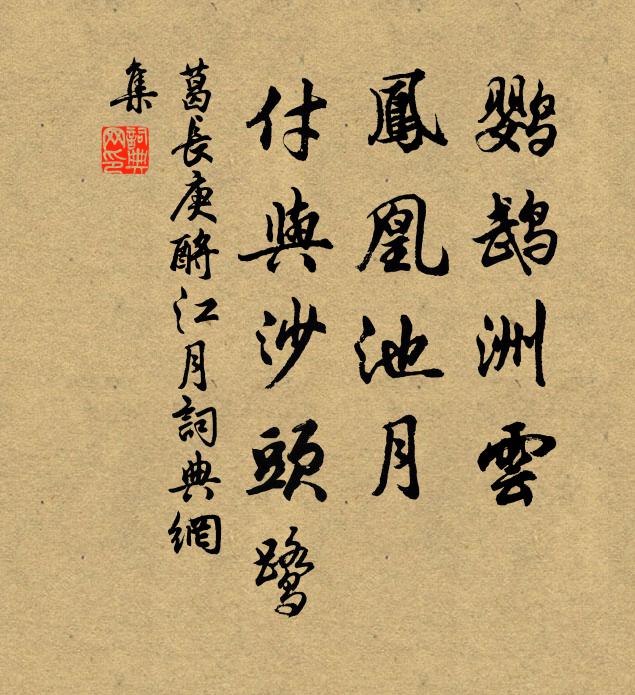 鸚鵡洲雲
鳳凰池月
付與沙頭鷺
葛長庚酹江月詞典網
集
詞典网印